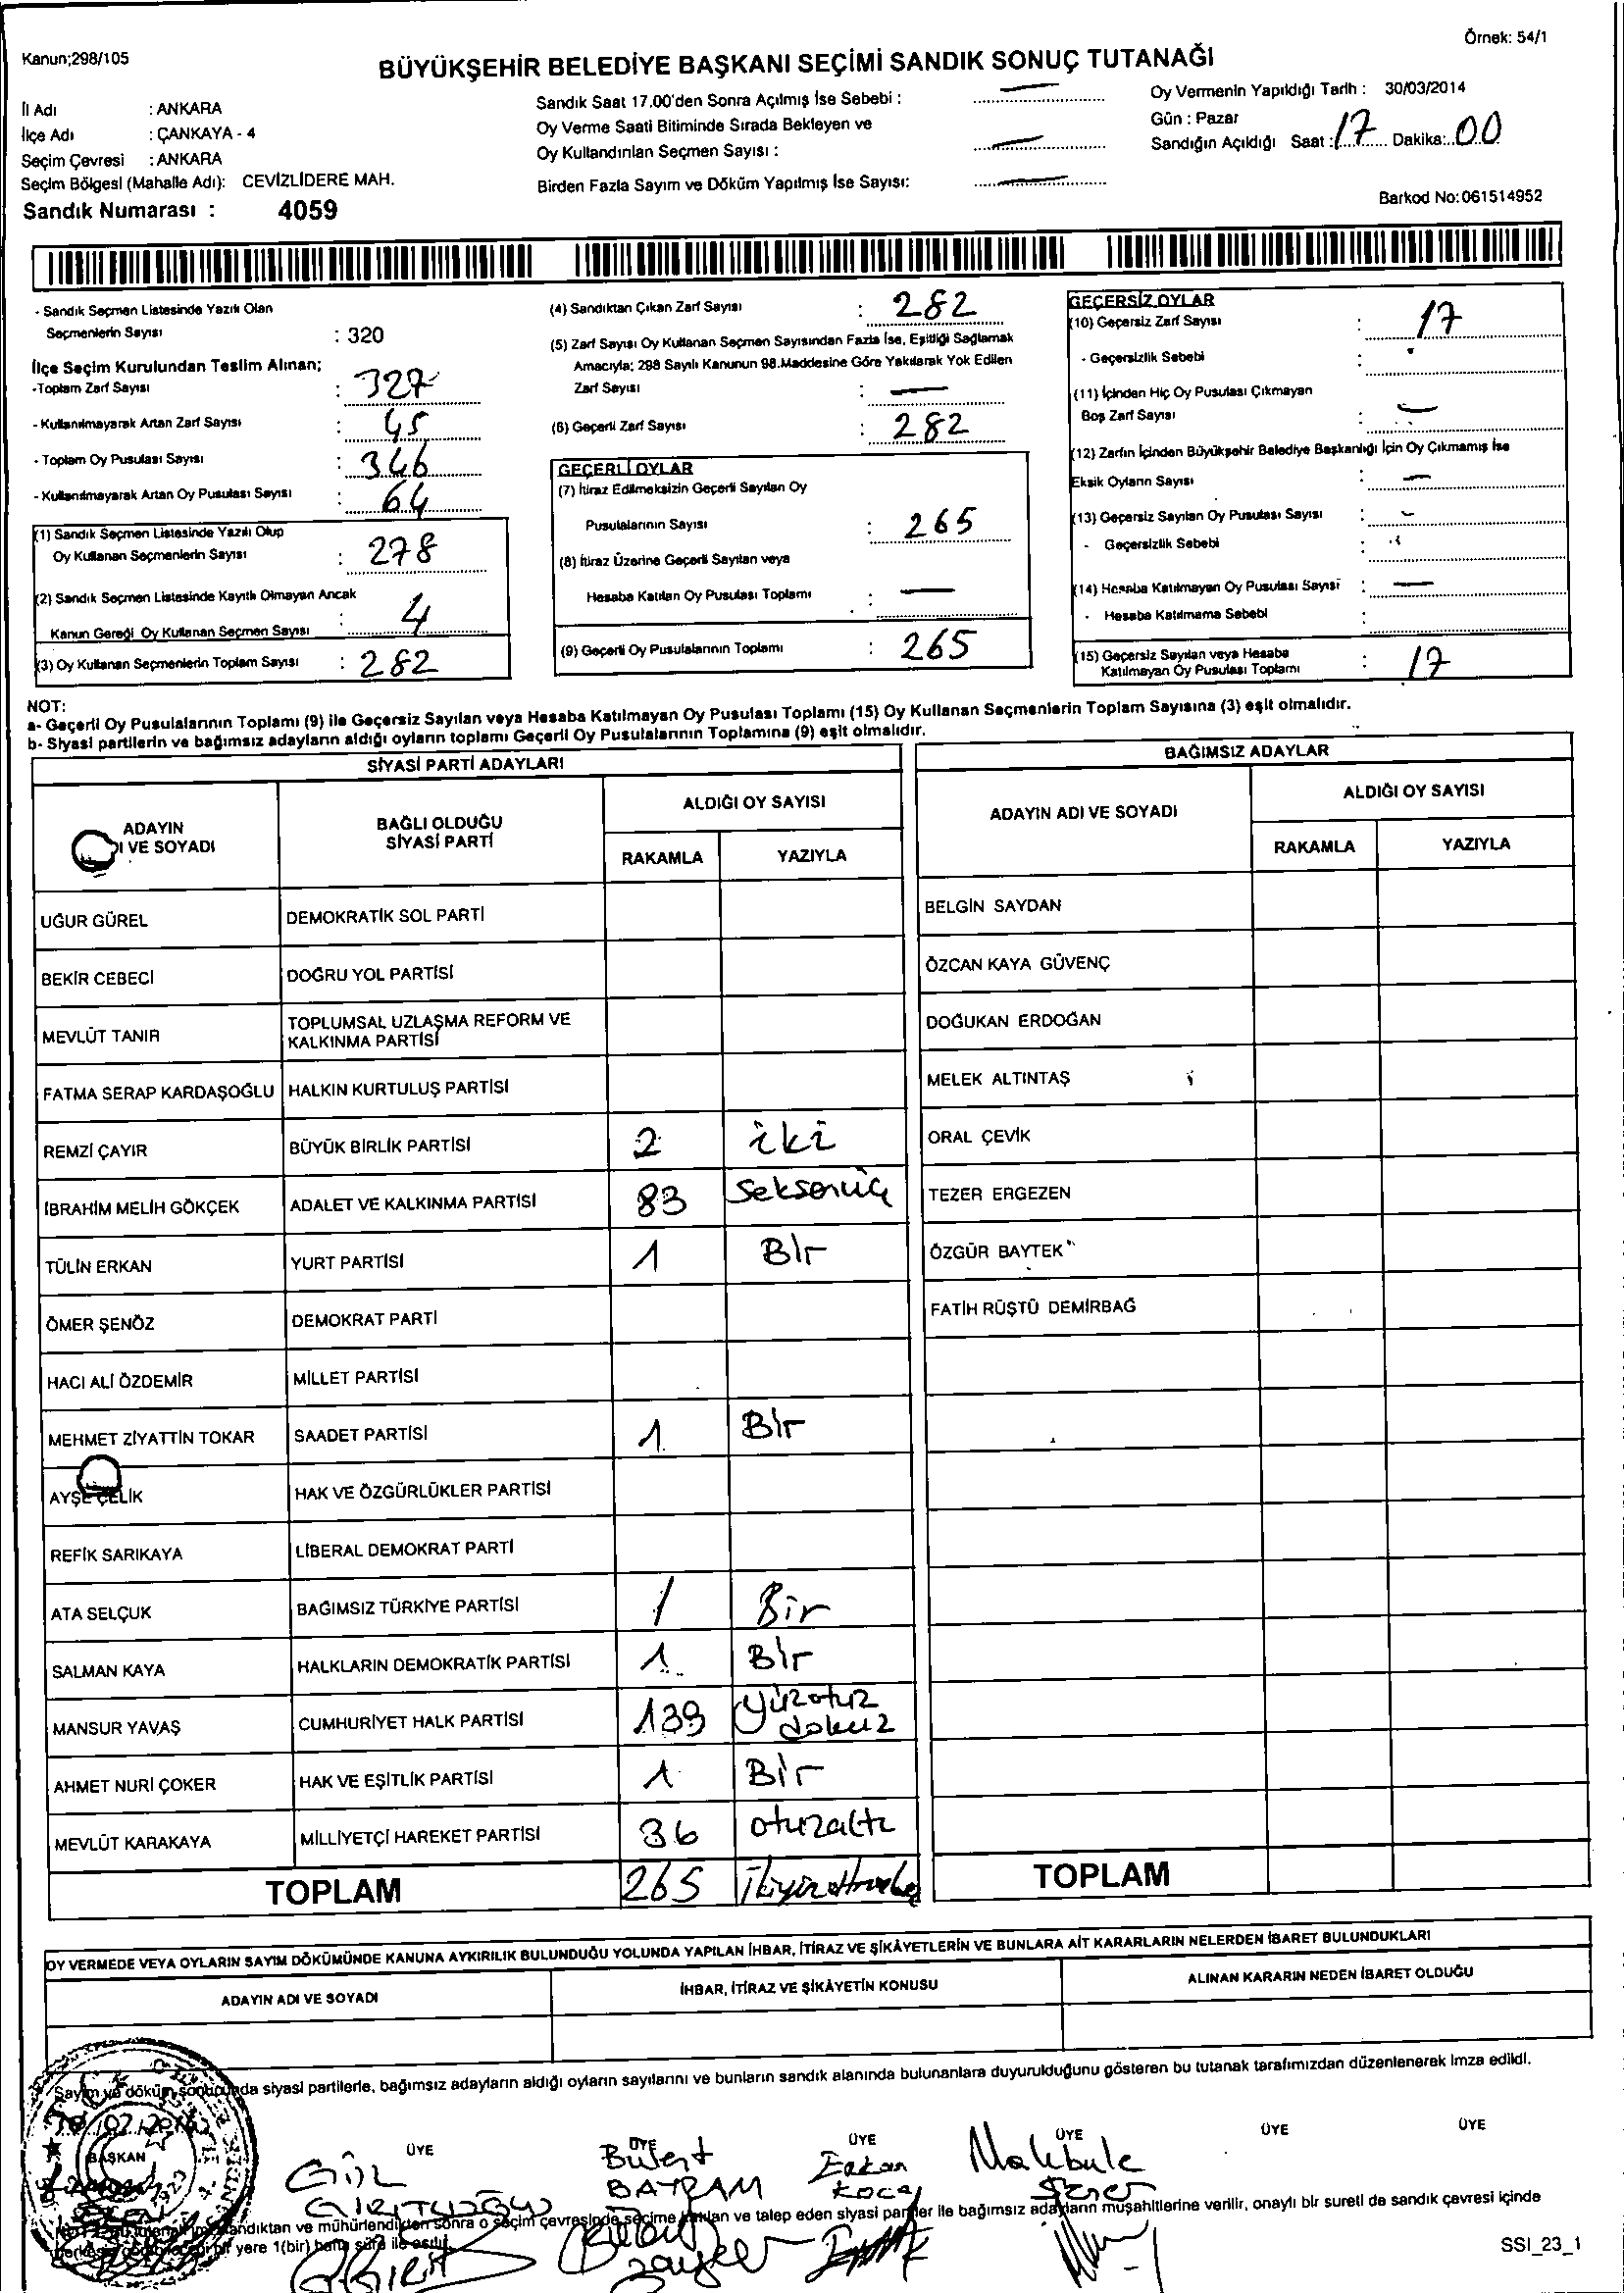 Kanun;298/105
Örnek: 54/1
BÜYÜKŞEHİR BELEDİYE BAŞKANI SEÇİMİ SANDIK SONUÇ TUTANAĞI
İl Adı : ANKARA
İlçe Adı : ÇANKAYA - 4
Seçim Çevresi : ANKARA
Seçim Bölgesi (Mahalle Adı): CEVİZLİDERE MAH.
Sandık Numarası : 4059
Sandık Saat 17.00'den Sonra Açılmış İse Sebebi : —
Oy Verme Saati Bitiminde Sırada Bekleyen ve
Oy Kullandırılan Seçmen Sayısı : —
Birden Fazla Sayım ve Döküm Yapılmış İse Sayısı: —
Oy Vermenin Yapıldığı Tarih : 30/03/2014
Gün : Pazar
Sandığın Açıldığı Saat : 17 Dakika: 00
Barkod No:061514952
- Sandık Seçmen Listesinde Yazılı Olan
Seçmenlerin Sayısı : 320
İlçe Seçim Kurulundan Teslim Alınan;
-Toplam Zarf Sayısı : 327
- Kullanılmayarak Artan Zarf Sayısı : 45
- Toplam Oy Pusulası Sayısı : 346
- Kullanılmayarak Artan Oy Pusulası Sayısı : 64
(1) Sandık Seçmen Listesinde Yazılı Olup
Oy Kullanan Seçmenlerin Sayısı : 278
(2) Sandık Seçmen Listesinde Kayıtlı Olmayan Ancak
Kanun Gereği Oy Kullanan Seçmen Sayısı : 4
(3) Oy Kullanan Seçmenlerin Toplam Sayısı : 282
(4) Sandıktan Çıkan Zarf Sayısı : 282
(5) Zarf Sayısı Oy Kullanan Seçmen Sayısından Fazla İse, Eşitliği Sağlamak
Amacıyla; 298 Sayılı Kanunun 98.Maddesine Göre Yakılarak Yok Edilen
Zarf Sayısı : —
(6) Geçerli Zarf Sayısı : 282
GEÇERLİ OYLAR
(7) İtiraz Edilmeksizin Geçerli Sayılan Oy
Pusulalarının Sayısı : 265
(8) İtiraz Üzerine Geçerli Sayılan veya
Hesaba Katılan Oy Pusulası Toplamı : —
(9) Geçerli Oy Pusulalarının Toplamı : 265
GEÇERSİZ OYLAR
(10) Geçersiz Zarf Sayısı : 17
- Geçersizlik Sebebi :
(11) İçinden Hiç Oy Pusulası Çıkmayan
Boş Zarf Sayısı : —
(12) Zarfın İçinden Büyükşehir Belediye Başkanlığı İçin Oy Çıkmamış İse
Eksik Oyların Sayısı : —
(13) Geçersiz Sayılan Oy Pusulası Sayısı : —
- Geçersizlik Sebebi :
(14) Hesaba Katılmayan Oy Pusulası Sayısı : —
- Hesaba Katılmama Sebebi :
(15) Geçersiz Sayılan veya Hesaba
Katılmayan Oy Pusulası Toplamı : 17
NOT:
a- Geçerli Oy Pusulalarının Toplamı (9) ile Geçersiz Sayılan veya Hesaba Katılmayan Oy Pusulası Toplamı (15) Oy Kullanan Seçmenlerin Toplam Sayısına (3) eşit olmalıdır.
b- Siyasi partilerin ve bağımsız adayların aldığı oyların toplamı Geçerli Oy Pusulalarının Toplamına (9) eşit olmalıdır.
SİYASİ PARTİ ADAYLARI
ADAYIN
I VE SOYADI
BAĞLI OLDUĞU
SİYASİ PARTİ
ALDIĞI OY SAYISI
RAKAMLA YAZIYLA
UĞUR GÜREL DEMOKRATİK SOL PARTİ
BEKİR CEBECİ DOĞRU YOL PARTİSİ
MEVLÜT TANIR TOPLUMSAL UZLAŞMA REFORM VE
KALKINMA PARTİSİ
FATMA SERAP KARDAŞOĞLU HALKIN KURTULUŞ PARTİSİ
REMZİ ÇAYIR BÜYÜK BİRLİK PARTİSİ 2 iki
İBRAHİM MELİH GÖKÇEK ADALET VE KALKINMA PARTİSİ 83 Seksenüç
TÜLİN ERKAN YURT PARTİSİ 1 Bir
ÖMER ŞENÖZ DEMOKRAT PARTİ
HACI ALİ ÖZDEMİR MİLLET PARTİSİ
MEHMET ZİYATTİN TOKAR SAADET PARTİSİ 1 Bir
AYŞE ÇELİK HAK VE ÖZGÜRLÜKLER PARTİSİ
REFİK SARIKAYA LİBERAL DEMOKRAT PARTİ
ATA SELÇUK BAĞIMSIZ TÜRKİYE PARTİSİ 1 Bir
SALMAN KAYA HALKLARIN DEMOKRATİK PARTİSİ 1 Bir
MANSUR YAVAŞ CUMHURİYET HALK PARTİSİ 139 yüzotuz
dokuz
AHMET NURİ ÇOKER HAK VE EŞİTLİK PARTİSİ 1 Bir
MEVLÜT KARAKAYA MİLLİYETÇİ HAREKET PARTİSİ 36 otuzaltı
TOPLAM 265 İkiyüzaltmışbeş
BAĞIMSIZ ADAYLAR
ADAYIN ADI VE SOYADI
ALDIĞI OY SAYISI
RAKAMLA YAZIYLA
BELGİN SAYDAN
ÖZCAN KAYA GÜVENÇ
DOĞUKAN ERDOĞAN
MELEK ALTINTAŞ
ORAL ÇEVİK
TEZER ERGEZEN
ÖZGÜR BAYTEK
FATİH RÜŞTÜ DEMİRBAĞ
TOPLAM
OY VERMEDE VEYA OYLARIN SAYIM DÖKÜMÜNDE KANUNA AYKIRILIK BULUNDUĞU YOLUNDA YAPILAN İHBAR, İTİRAZ VE ŞİKÂYETLERİN VE BUNLARA AİT KARARLARIN NELERDEN İBARET BULUNDUKLARI
ADAYIN ADI VE SOYADI İHBAR, İTİRAZ VE ŞİKÂYETİN KONUSU ALINAN KARARIN NEDEN İBARET OLDUĞU
Sayım ve döküm sonucunda siyasi partilerle, bağımsız adayların aldığı oyların sayılarını ve bunların sandık alanında bulunanlara duyurulduğunu gösteren bu tutanak tarafımızdan düzenlenerek imza edildi.
BAŞKAN ÜYE ÜYE ÜYE ÜYE ÜYE ÜYE
Gül Bülent Erkan Makbule
BAYRAM KOCA
sonra o seçim çevresinde seçime katılan ve talep eden siyasi partiler ile bağımsız adayların müşahitlerine verilir, onaylı bir sureti de sandık çevresi içinde
bir yere 1(bir) hafta süre ile asılır.
SSI_23_1